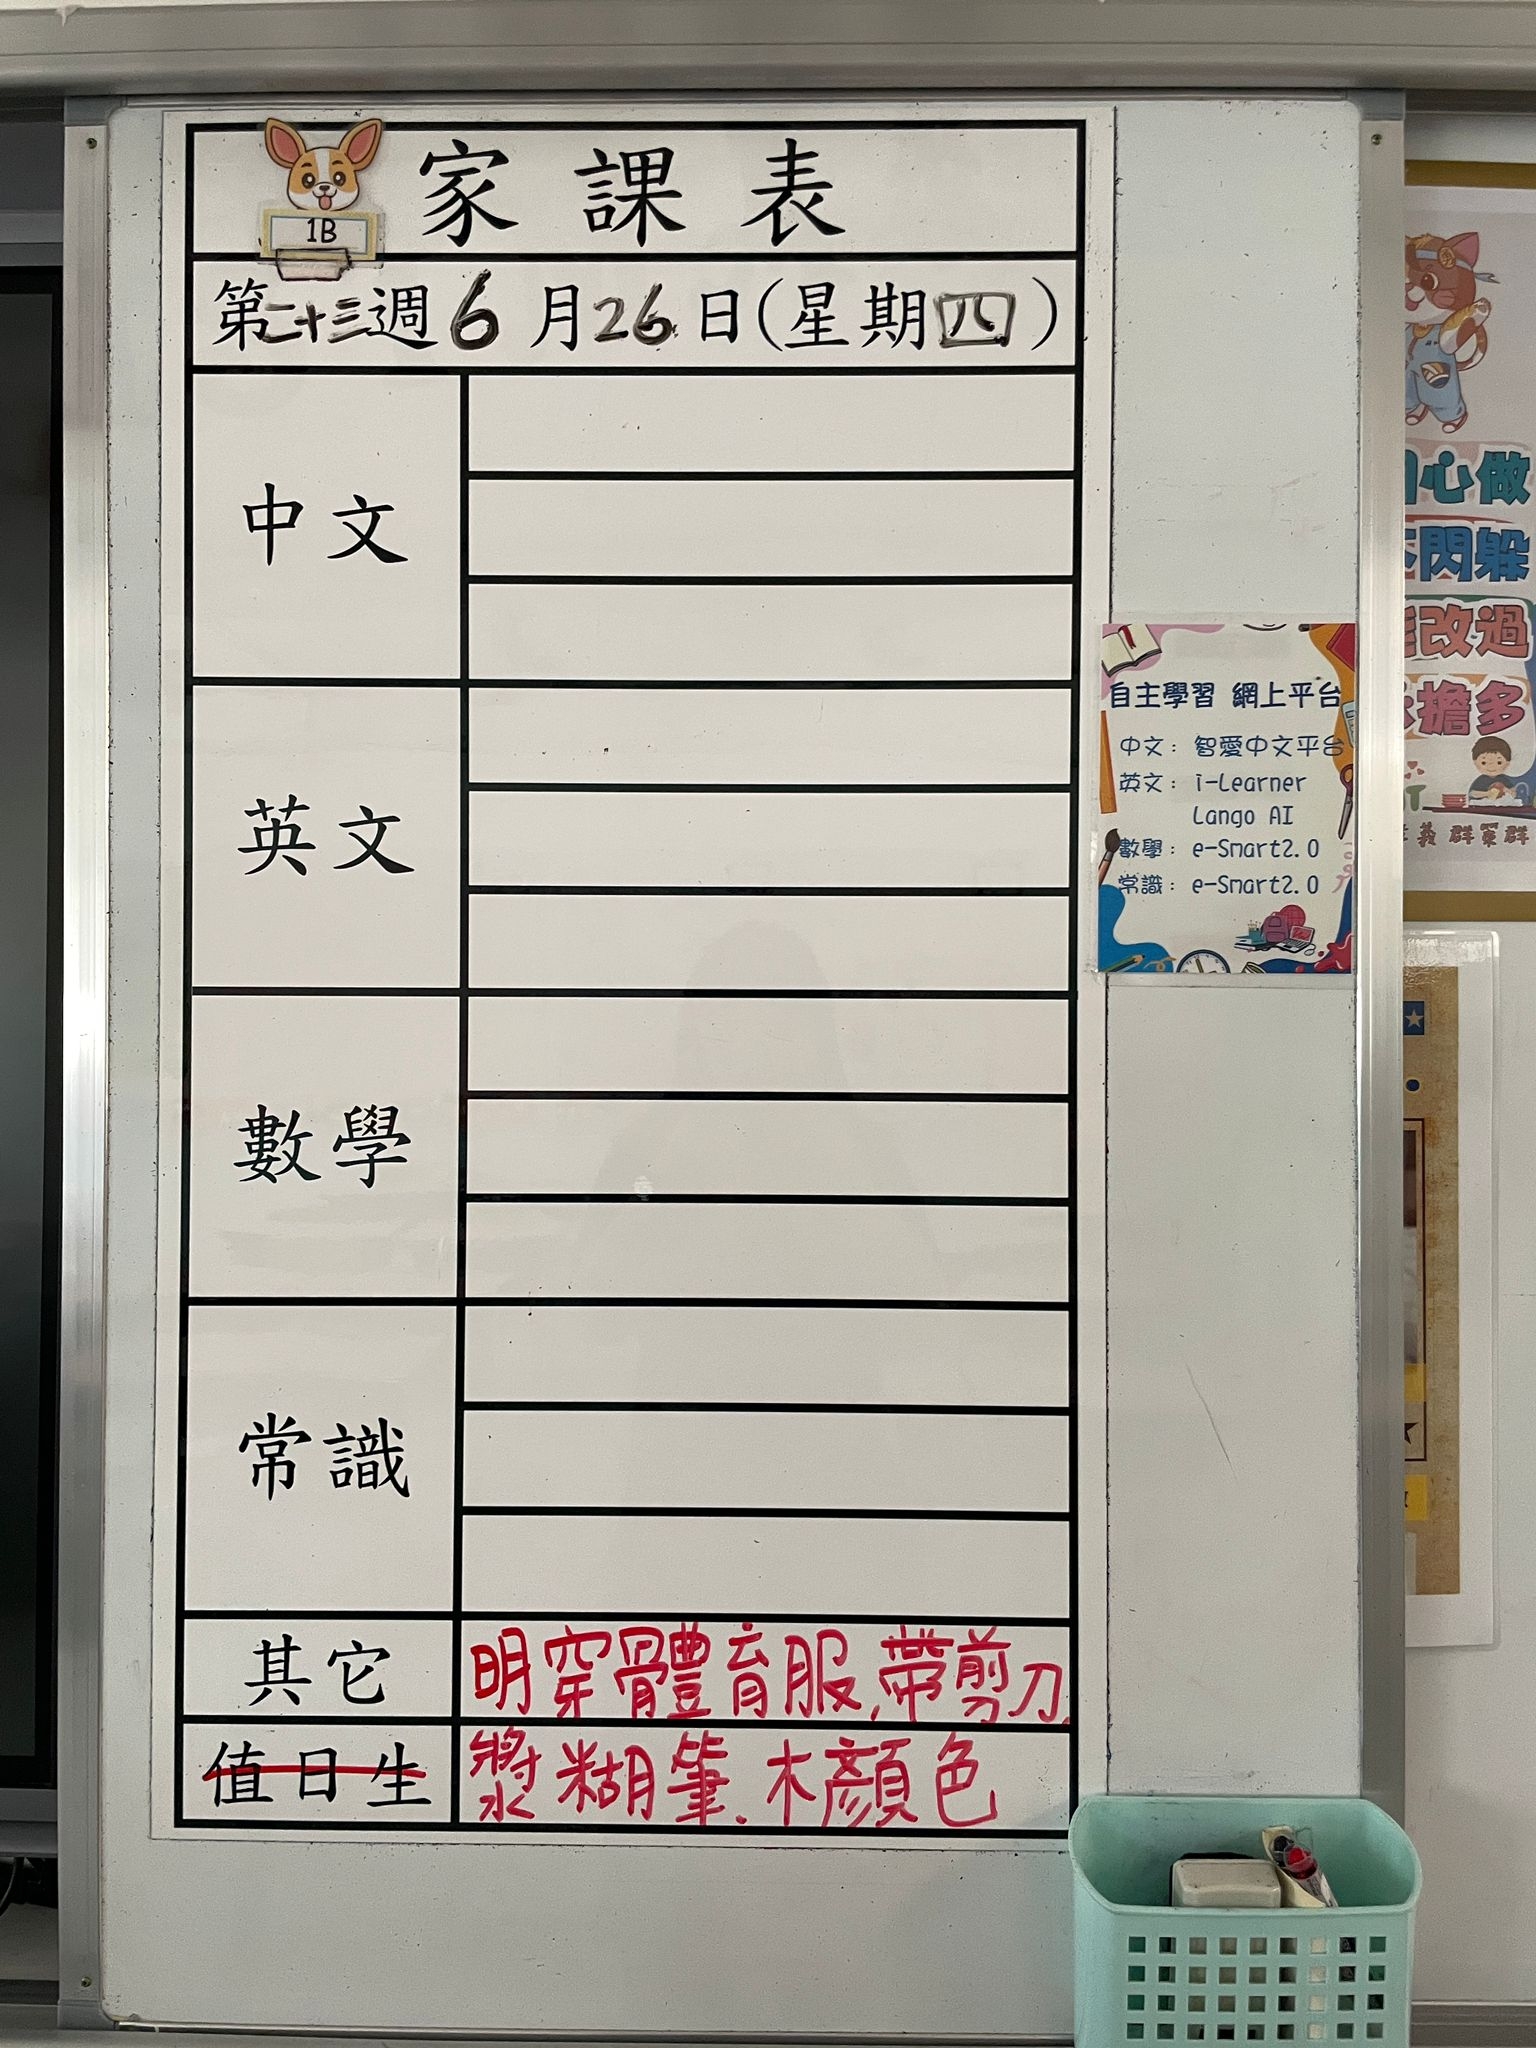 家課表
1B
第二十三週6月26日(星期四)
中文
英文
數學
常識
其它
明穿體育服,帶剪刀,
值日生
漿糊筆、木顏色
自主學習 網上平台
中文:智愛中文平台
英文:i-Learner
Lango AI
數學:e-Smart2.0
常識:e-Smart2.0
心做
閃躲
改過
擔多
義群